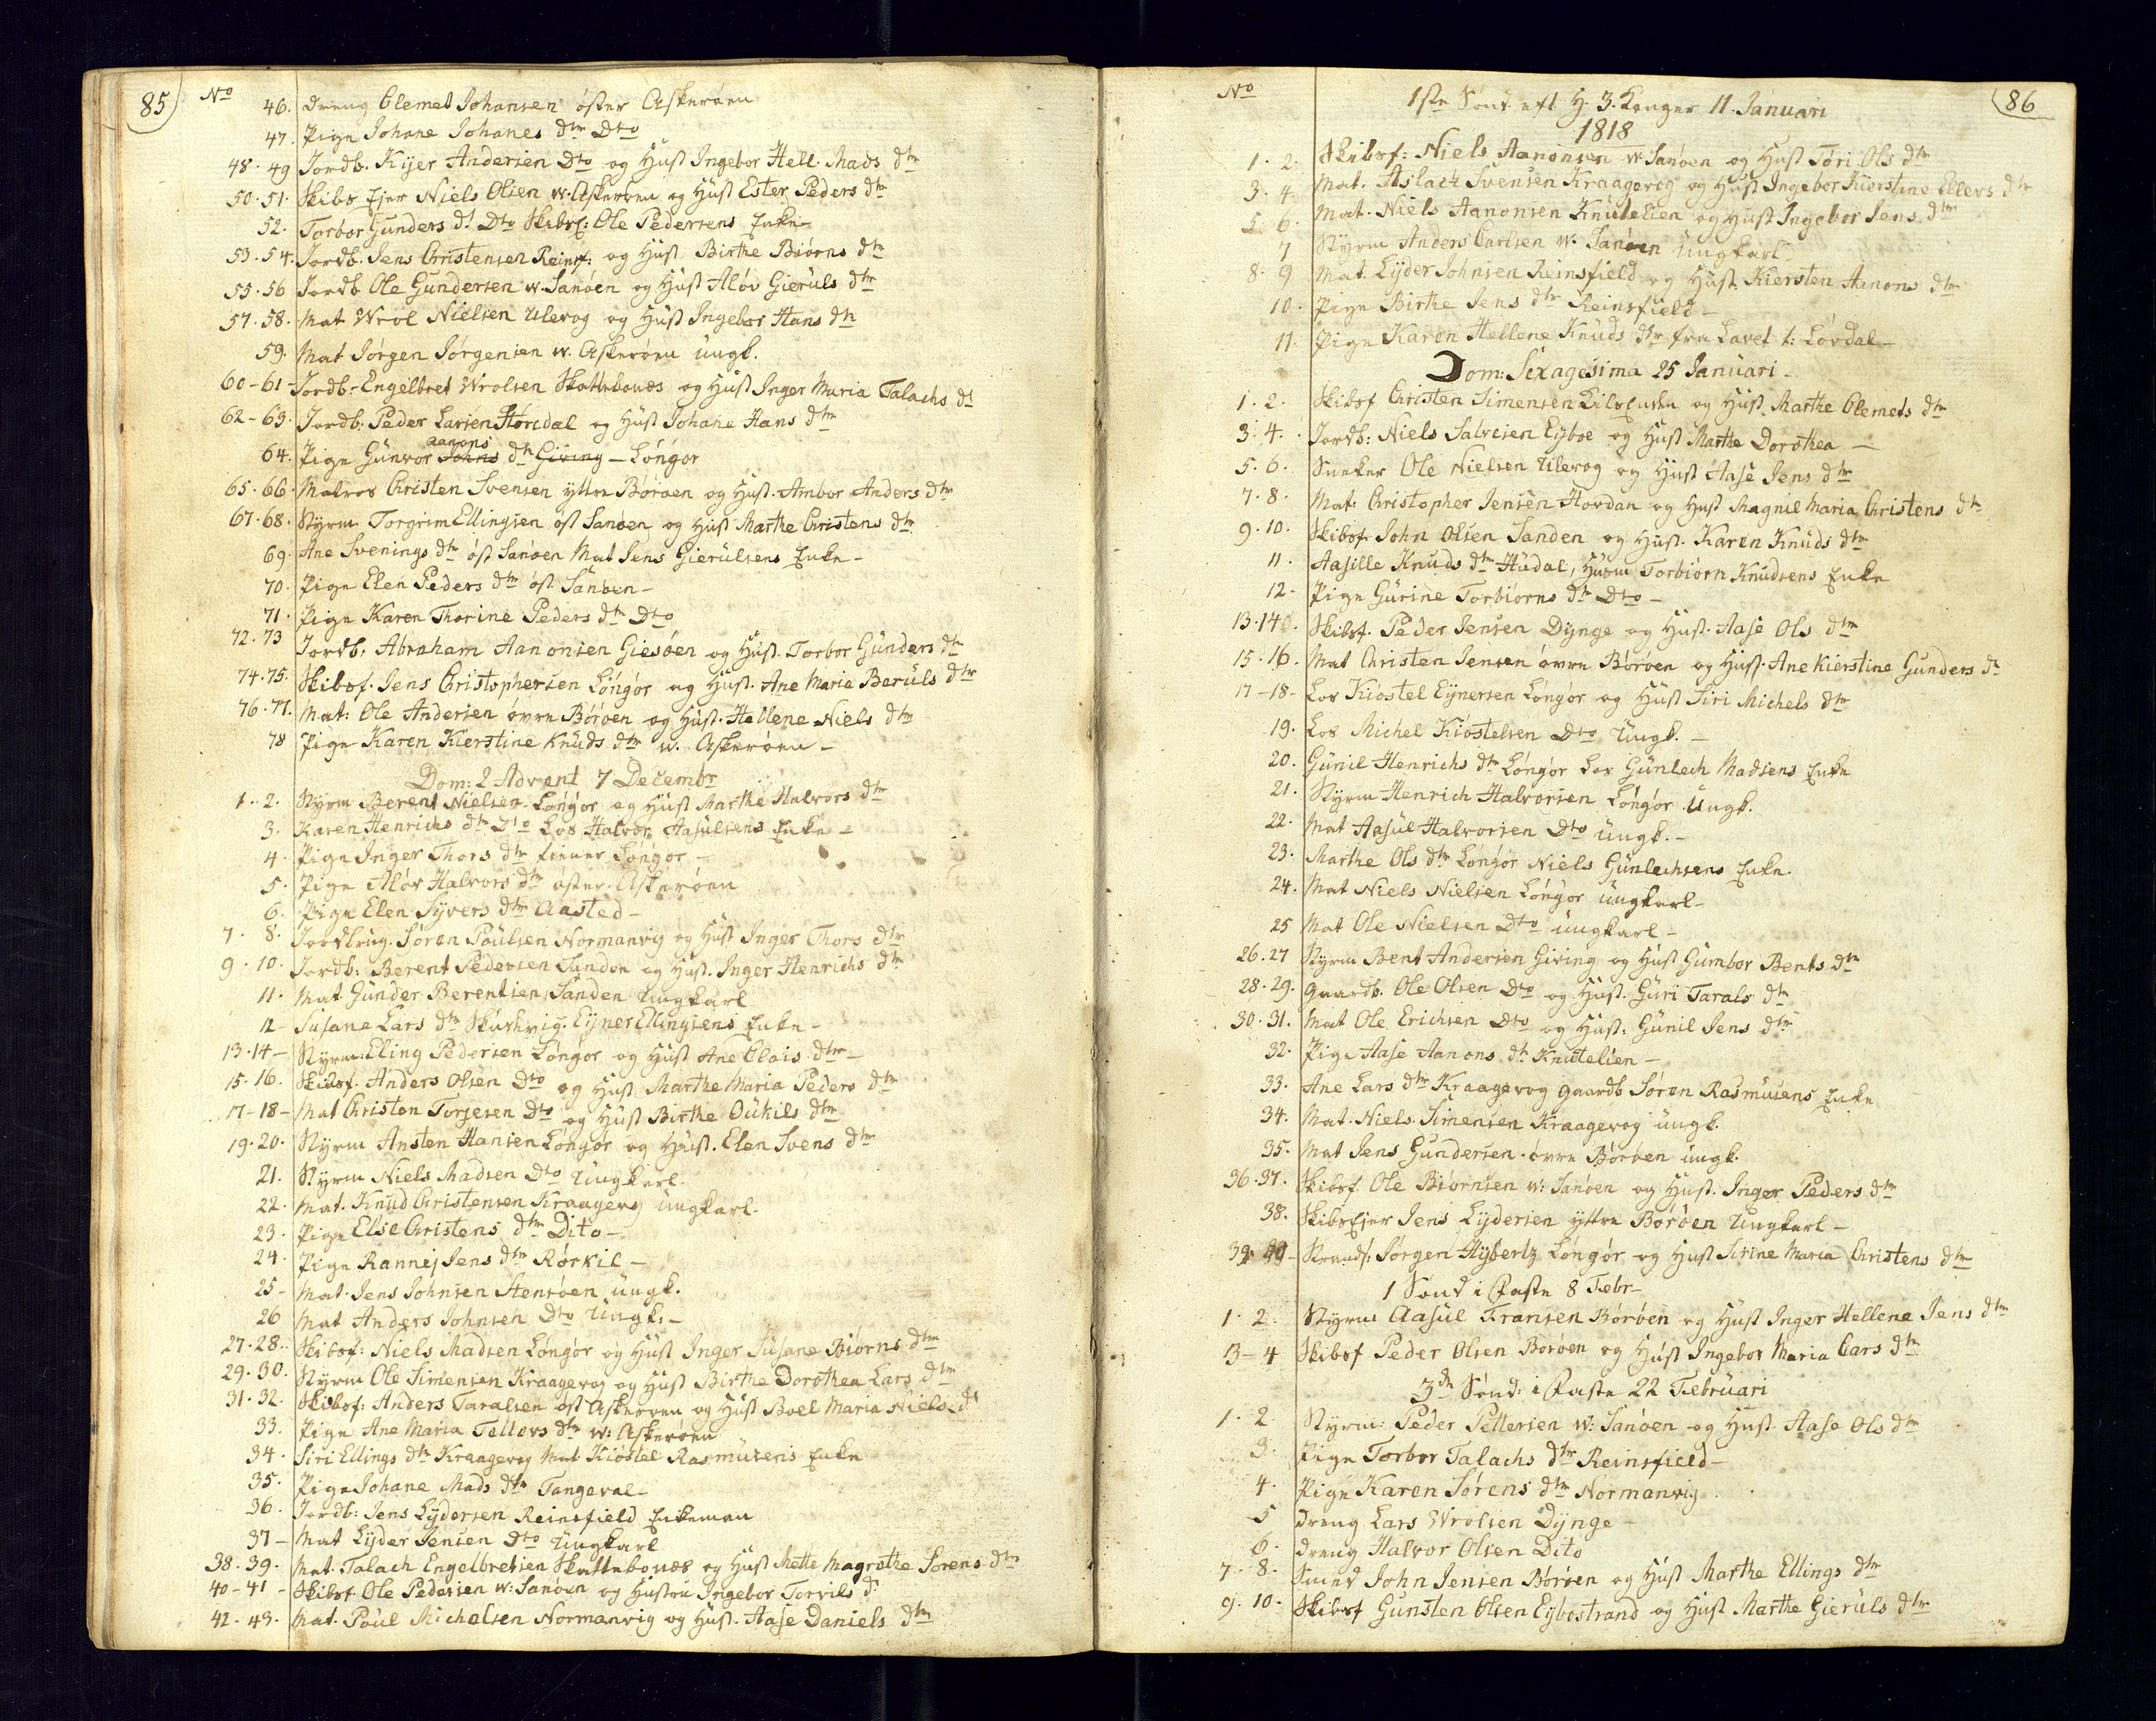 85) No
46. Dreng Clemet Johansen öster Askerøen
47. Pige Johane Johanes dtr Dto
48. 49 Jordb. Kijer Andersen Dto og Hust Ingebor Hell. Mads dtr
50. 51. Skibs Ejer Niels Olsen w. Askerøen og Hust Ester Peders dtr
52. Torbor Gunders dt Dto Skibsf: Ole Pedersens Enke
53. 54. Jordb. Jens Christensen Reinsf: og Hust Birthe Biørns dtr
55. 56 Jordb Ole Gundersen w. Sanøen og Hust Aløv Gieruls dtr
57. 58. Mat Wrol Nielsen Ulevog og Hust Ingebor Hans dtr
59. Mat Jørgen Jørgensen w. Askerøen ungk.
60-61- Jordb. Engelbret Wrolsen Skattebonæs og Hust Inger Maria Talachs dt
62-63. Jordb: Peder Larsen Hovdal og Hust Johane Hans dtr
64. Pige Gunvor Aanons Johns dtr Giving - Løngør
65. 66. Matros Christen Svensen yttre Børøen og Hust. Ambor Anders dtr
67. 68. Styrm. Torgrim Ellingsen öst Sanøen og Hust Marthe Christens dtr
69. Ane Svenings dtr öst Sanøen Mat Jens Gierulsens Enke -
70. Pige Elen Peders dtr öst. Sanøen -
71. Pige Karen Thorine Peders dtr Dto
72. 73 Jordb. Abraham Aanonsen Giesøen og Hust. Torbor Gunders dtr
74. 75. Skibsf. Jens Christophersen Løngør og Hust. Ane Maria Beruls dtr
76. 77. Mat: Ole Andersen øvre Børøen og Hust. Hellene Niels dtr
78 Pige Karen Kierstine Knuds dtr w. Askerøen -
Dom: 2 Advent 7 Decembr
1. 2. Styrm Berent Nielsen Løngør og Hust Marthe Halvors dtr
3. Karen Henrichs dtr Dto Los Halvor Aasulsens Enke -
4. Pige Inger Thors dtr Løngør -
5. Pige Aløv Halvors dtr öster Askerøen
6. Pige Elen Syvers dtr Aasted -
7. 8. Jordbrug. Søren Poulsen Normanvig og Hust Inger Thors dtr
9. 10. Jordb: Berent Pedersen Sanden og Hust. Inger Henrichs dtr
11. Mat Gunder Berentsen Sanden Ungkarl
12 - Susane Lars dtr Skudevig. Eyner Ellingsens Enke -
13. 14 - Styrm: Eling Pedersen Løngør og Hust Ane Clais dtr -
15. 16. Skibsf. Anders Olsen Dto og Hust Marthe Maria Peders dtr
17-18 - Mat Christen Torjesen Dto og Hust Birthe Oukils dtr
19. 20. Styrm Ansten Hansen Løngør og Hust. Elen Svens dtr
21. Styrm Niels Madsen Dto Ungkarl.
22. Mat. Knud Christensen Kraagevog ungkarl.
23. Pige Else Christens dtr Dito -
24. Pige Rannej Jens dtr Rørkil -
25 - Mat. Jens Johnsen Stensøen ungk.
26 Mat Anders Johnsen Dto Ungk. -
27. 28. Skibsf: Niels Madsen Løngør og Hust Inger Susane Biørns dtr
29. 30. Styrm Ole Simensen Kraagevog og Hust Birthe Dorothea Lars dtr
31. 32. Skibsf: Anders Taralsen öst Askerøen og Hust Boel Maria Niels dt
33. Pige Ane Maria Tellevs dtr w: Askerøen
34. Siri Ellings dtr Kraagevog Mat Kiøstel Rasmusens Enke
35. Pige Johane Mads dtr Tangeval -
36. Jordb: Jens Lydersen Reinsfield Enkeman
37 - Mat Lyder Jensen Dto Ungkarl
38. 39. Mat. Talach Engelbretsen Skattebonæs og Hust Mette Magrethe Sørens dtr
40-41 - Skibsf Ole Pedersen w: Sanøen og Hustru Ingebor Torvils dt
42-43. Mat. Poul Michelsen Normanvig og Hust. Aase Daniels dtr
No (86
1ste Sönd. eft H. 3. Konger 11. Januari
1818
1. 2. Skibsf: Niels Aanonsen w. Sanøen og Hust Tøri Ols dtr
3. 4. Mat. Aslach Svensen Kraagevog og Hust Ingebor Kierstine Ellevs dtr
5. 6. Mat. Niels Aanonsen Knutelien og Hust Ingebor Jens dtr
7 Styrm Anders Carlsen w. Sanøen Ungkarl
8. 9 Mat. Lyder Johnsen Reinsfield og Hust. Kiersten Aanons dtr
10. Pige Birthe Jens dtr Reinsfield -
11. Pige Karen Hellene Knuds dtr fra Lavet t: Løvdal -
Dom: Sexagesima 25 Januari -
1. 2. Skibsf Christen Simensen og Hust. Marthe Clemets dtr
3. 4. Jordb: Niels Salvesen Eyboe og Hust Marthe Dorothea -
5. 6. Sneker Ole Nielsen Ulevog og Hust Aase Jens dtr
7. 8. Mat: Christopher Jensen Hovdan og Hust Magnil Maria Christens dtr
9. 10. Skibsf John Olsen Sanden og Hust. Karen Knuds dtr
11. Aasille Knuds dtr Hudal, Husm Torbiørn Knudsens Enke
12. Pige Gurine Torbiørns dtr Dto -
13. 14. Skibsf. Peder Jensen Dynge og Hust. Aase Ols dtr
15. 16. Mat Christen Jensen øvre Børøen og Hust. Ane Kierstine Gunders dt
17-18 - Los Kiøstel Eynersen Løngør og Hust Siri Michels dtr
19. Los Michel Kiøstelsen Dto Ungk. -
20. Gunil Henrichs dtr Løngør Los Gunlech Madsens Enke
21. Styrm Henrich Halvorsen Løngør Ungk.
22. Mat Aasul Halvorsen Dto ungk. -
23. Marthe Ols dtr Løngør Niels Gunlechsens Enke.
24. Mat Niels Nielsen Løngør ungkarl -
25 Mat Ole Nielsen Dto ungkarl -
26. 27 Styrm Bent Andersen Giving og Hust Gumbor Bents dtr
28. 29. Gaardb. Ole Olsen Dto og Hust. Guri Tarals dtr
30. 31. Mat Ole Erichsen Dto og Hust: Gunil Jens dtr
32. Pige Aase Aanons dtr Knutelien -
33. Ane Lars dtr Kraagevog Gaardb Søren Rasmusens Enke
34. Mat. Niels Simensen Kraagevog ungk.
35. Mat Jens Gundersen øvre Børøen ungk.
36. 37. Skibsf. Ole Biørnsen w: Sanøen og Hust. Inger Peders dtr
38. SkibsEjer Jens Lydersen yttre Børøen Ungkarl -
39. 40 - Strands: Jørgen Hybertz Løngør og Hust Sirine Maria Christens dtr
1 Sönd i Faste 8 Febr -
1. 2. Styrm Aasul Fransen Børøen og Hust Inger Hellene Jens dtr
3 - 4 Skibsf Peder Olsen Børøen og Hust Ingebor Maria Lars dtr
3de Sönd: i Faste 22 Februari
1. 2 Styrm: Peder Pettersen w: Sanøen og Hust. Aase Ols dtr
3. Pige Torbor Talachs dtr Reinsfield -
4. Pige Karen Sørens dtr Normanvig
5 Dreng Lars Wrolsen Dynge -
6. Dreng Halvor Olsen Dito
7. 8. Smed John Jensen Børøen og Hust Marthe Ellings dtr
9. 10. Skibsf Gunsten Olsen Eybostrand og Hust Marthe Gieruls dtr